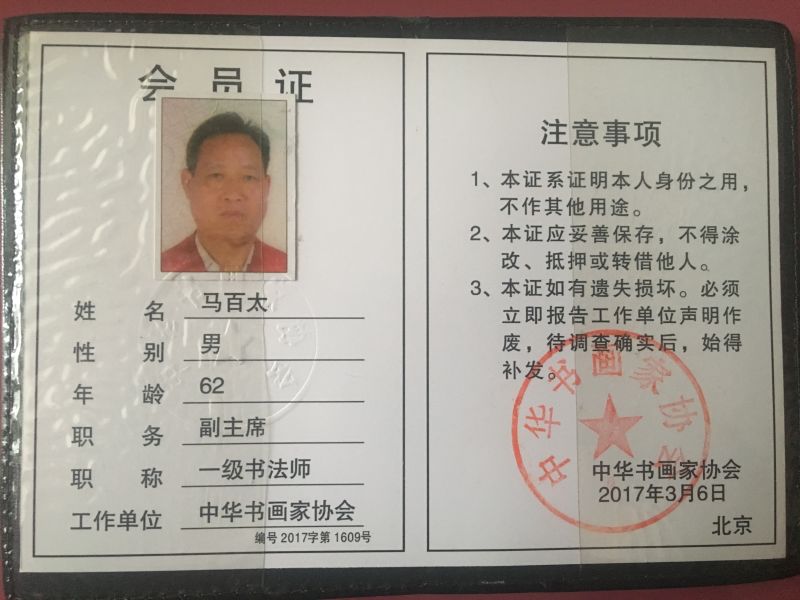 会员证
姓名 马百太
性别 男
年龄 62
职务 副主席
职称 一级书法师
工作单位 中华书画家协会
编号 2017字第 1609号
注意事项
1、本证系证明本人身份之用，
不作其他用途。
2、本证应妥善保存，不得涂
改、抵押或转借他人。
3、本证如有遗失损坏。必须
立即报告工作单位声明作
废，待调查确实后，始得
补发。
中华书画家协会
中华书画家协会
2017年3月6日
北京